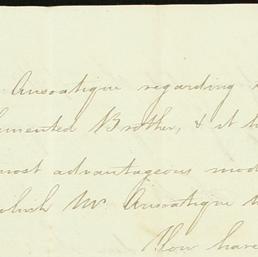 Ansoatigue regarding
lamented Brother, & it
most advantageous mod
which Mr. Ansoatigue
You have